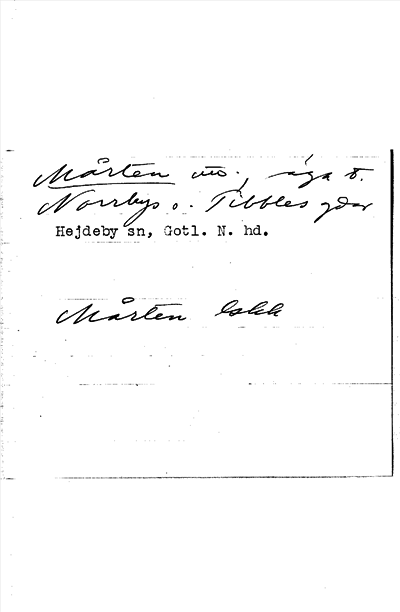 Mårten m., äga t.
Norrbys o. Tibbles gdar
Hejdeby sn, Gotl. N. hd.
Mårten Eskk